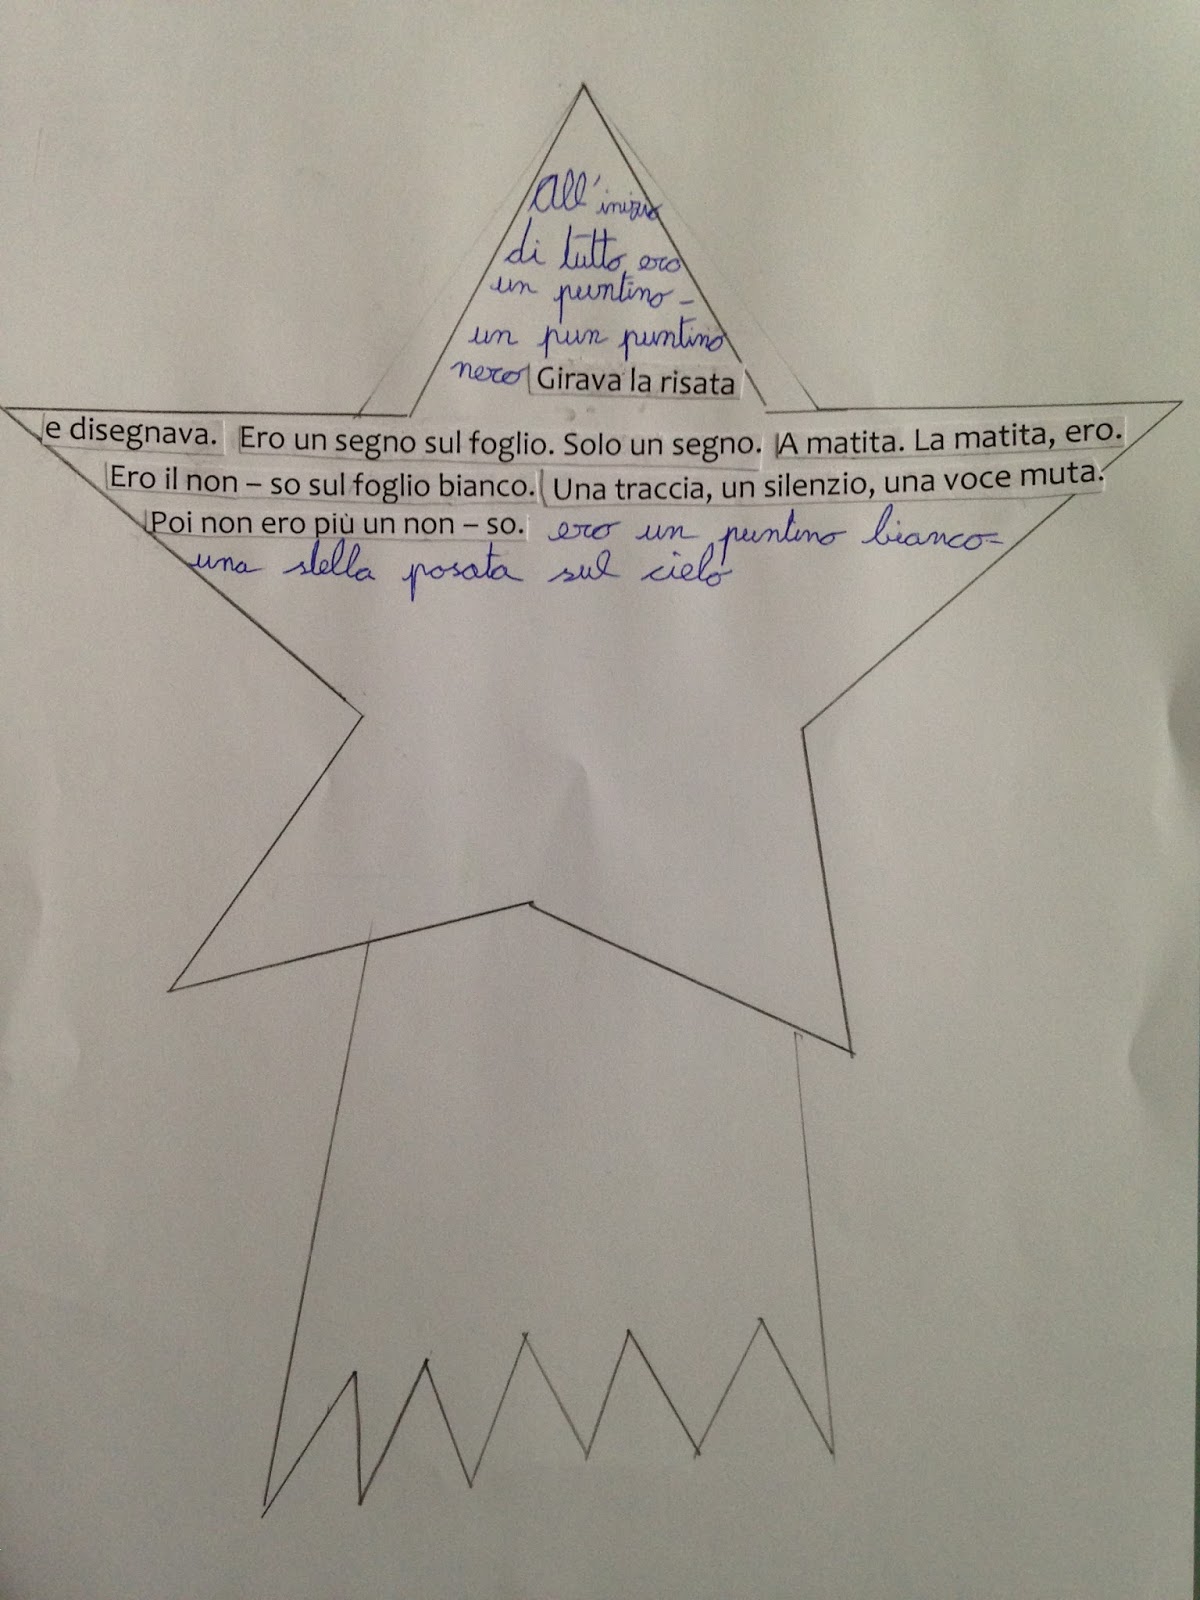 All'inizio
di tutto ero
un puntino -
un pun puntino
nero Girava la risata
e disegnava. Ero un segno sul foglio. Solo un segno. A matita. La matita, ero.
Ero il non – so sul foglio bianco. Una traccia, un silenzio, una voce muta.
Poi non ero più un non – so. ero un puntino bianco-
una stella posata sul cielo